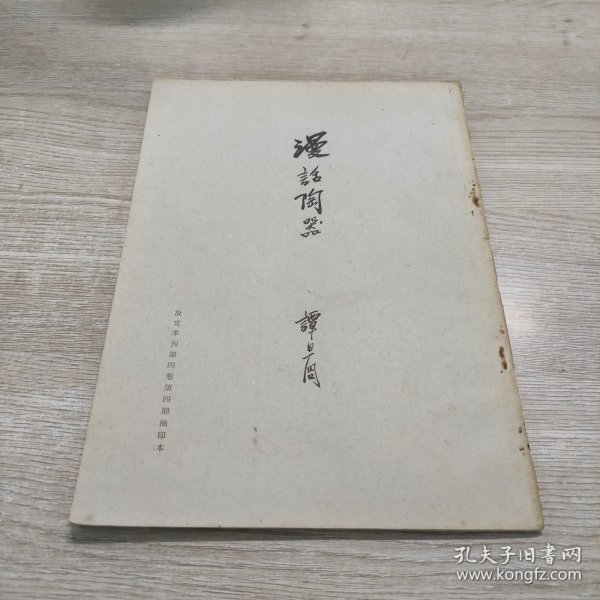 漫話陶器
譚旦冏
故宮季刊第四卷第四期抽印本
孔夫子旧書网
www.kongfz.com